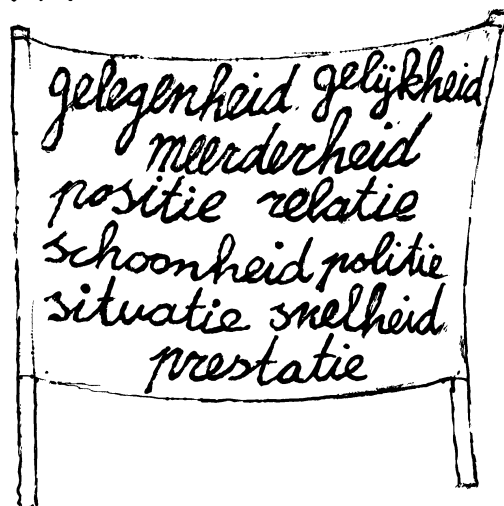 gelegenheid gelijkheid
meerderheid
positie relatie
schoonheid politie
situatie snelheid
prestatie